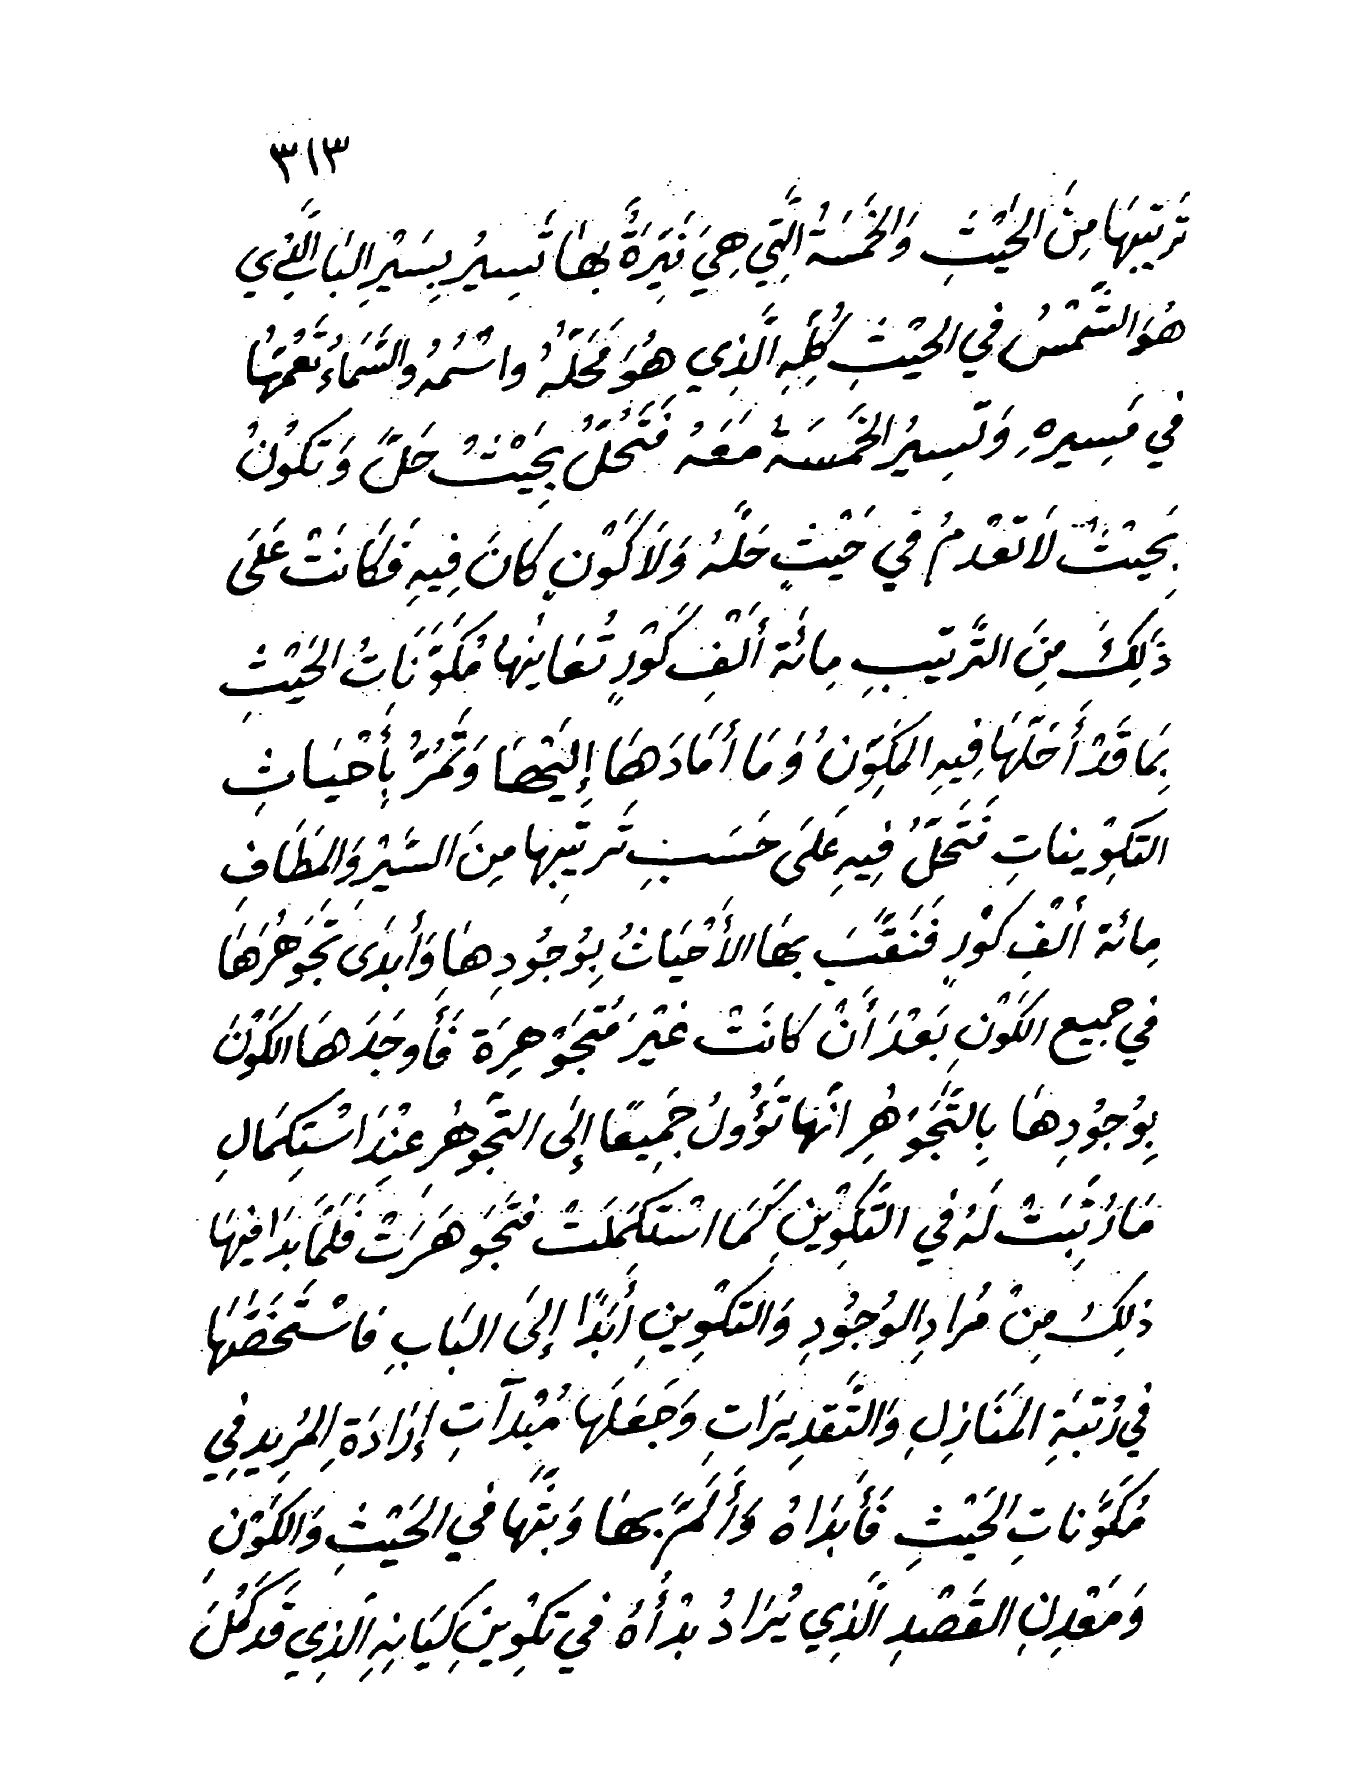 ٣١٣
تَرتيبِهَا مِنَ الحَيْثِ وَالخَمسَةُ الَّتِي هِيَ نَيِّرَةٌ بِهَا تَسِيرُ بِسَيْرِ البَابِ الَّذِي
هُوَ الشَّمْسُ فِي الحَيْثِ كُلِّهِ الَّذِي هُوَ مَحَلُّهُ واسْمُهُ والسَّمَاءُ تَعُمُّهَا
في مَسِيرِهِ وَتَسِيرُ الخَمسَةُ مَعَهُ فَتَحُلُّ بِحَيْثُ حَلَّ وَتَكُونُ
بِحَيْثُ لَا تَعْدمُ فِي حَيْثٍ حَلَّهُ وَلَا كَوْنٍ كانَ فِيهِ فَكَانَتْ عَلَى
ذَلِكَ مِنَ التَّرتيبِ مِائَة أَلْفِ كَوْرٍ تُعَايِنُهَا مُكَوَّنَاتُ الحَيْثِ
بِمَا قَدْ أَحَلَّهَا فِيهِ المُكَوِّنُ وَمَا أَمَادَهَا إِلَيْهَا وَتَمُرُّ بِأَحْيَاثِ
التكوِينَاتِ فَتَحُلُّ فِيهِ عَلَى حَسَبِ تَرتِيبِهَا مِنَ السَّيْرِ وَالمَطَافِ
مِائَة أَلْفِ كَوْرٍ فَنَقَّبَ بِهَا الأَحْيَاثُ بِوُجُودِهَا وَأَبدَى تَجَوهُرَهَا
فِي جميع الكَوْنِ بَعْدَ أَنْ كَانَتْ غَيْرَ مُتَجَوْهِرَة فَأَوجَدَهَا الكَوْنَ
بِوُجُودِهَا بِالتَّجَوْهُرِ انَّهَا تَؤُولُ جَمِيعًا إِلَى التَّجَوهُرِ عِنْدَ اسْتِكمَالِ
مَا رُتِّبَتْ لَهُ فِي التَّكوِينِ كَمَا اسْتَكمَلَتْ فَتَجَوهَرَتْ فَلَمَّا بَدَا فِيهَا
ذلِكَ مِنْ مُرادِ الوُجُودِ وَالتَكوِينِ أَبَدًا إِلَى البَابِ فَاسْتَخَصَّهَا
فِي رُتبَةِ المَنَازِلِ وَالتَّقدِيرَاتِ وَجَعَلَهَا مُبْدَآتِ إِرَادَةِ المُرِيدِ فِي
مُكَوَّنَاتِ الحَيْثِ فَأَبدَاهُ وَأَلَمَّ بِهَا وَبَثَّهَا فِي الحَيْثِ وَالكَوْنِ
وَمَعْدِنِ القَصْدِ الَّذِي يُرَادُ بَدْأُهُ فِي تَكوِينِ كِيَانِهِ الَّذِي قَد كَمُلَ